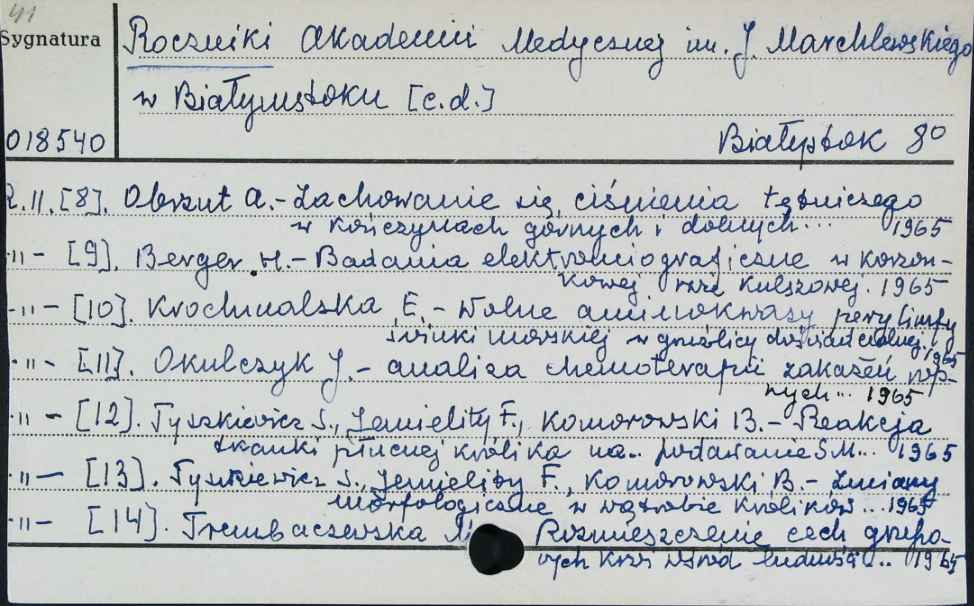 41
Sygnatura
Roczniki Akademii Medycznej im. J. Marchlewskiego
w Białymstoku [c.d.]
018540
Białystok 8°
R.11.[8]. Obrzut A.- Zachowanie się ciśnienia tętniczego
w kończynach górnych i dolnych... 1965
-"- [9]. Berger H.- Badania elektromiograficzne w korzon-
kowej rwie kulszowej. 1965
-"- [10]. Krochmalska E.- Wolne aminokwasy perylimfy
świnki morskiej w gruźlicy doświadczalnej. 1965
-"- [11]. Okulczyk J.- Analiza chemoterapii zakażeń
nych... 1965
-"- [12]. Tyszkiewicz S., Jemielity F., Komorowski B.- Reakcja
tkanki płucnej królika na.. podawanie SM... 1965
-"- [13]. Tyszkiewicz S., Jemielity F., Komorowski B.- Zmiany
morfologiczne w wątrobie królików... 1965
-"- [14]. Trembaczewska Rozmieszczenie cech grupo-
wych krwi wśród ludności... 1965